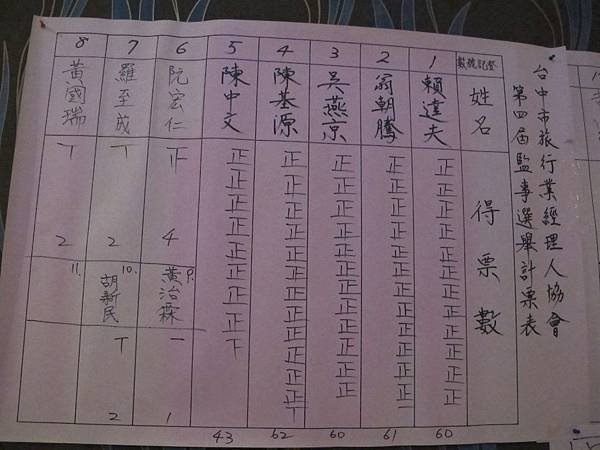 台中市旅行業經理人協會
第四屆監事選舉計票表
登記號數
姓名
得票數
1
賴達夫
正正正正正正正正正正正正
60
2
翁朝騰
正正正正正正正正正正正正一
61
3
吳燕京
正正正正正正正正正正正正
60
4
陳基源
正正正正正正正正正正正正丅
62
5
陳中文
正正正正正正正正下
43
6
阮宏仁
正
4
9.
黃治
一
1
7
羅至成
丅
2
10.
胡新民
丅
2
8
黃國瑞
丅
2
11.